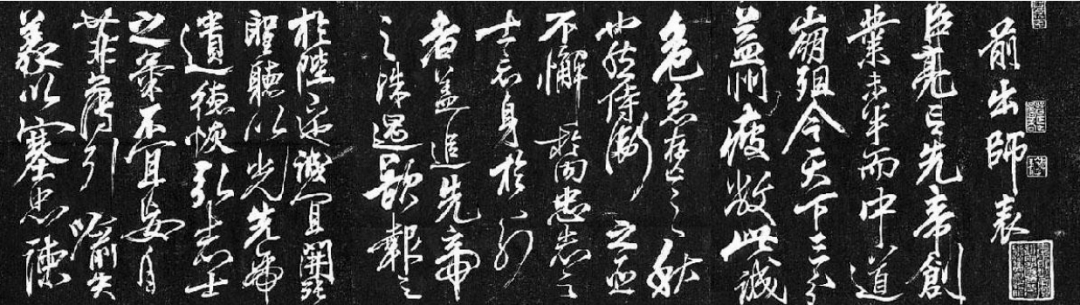 前出師表
臣亮言先帝創
業未半而中道
崩殂今天下三分
益州疲敝此誠
危急存亡之秋
也然侍衛之臣
不懈於内忠志之
士忘身於外
者蓋追先帝
之殊遇欲報之
於陛下誠宜開張
聖聽以光先帝
遺德恢弘志士
之氣不宜妄自
菲薄引喻失
義以塞忠諫